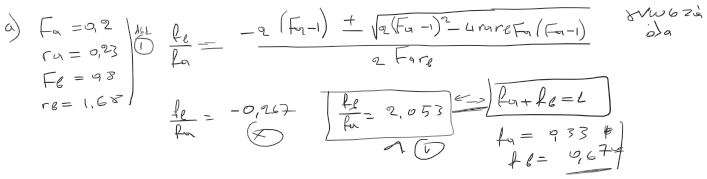 a) Fa = 0,2
ra = 0,23
Fb = 0,8
rb = 1,68
①
fb/fa = -2 (Fa-1) ± √2(Fa-1)² - 4rarbFa(Fa-1) / 2Farb
fb/fa = -0,267 ⊗
fb/fa = 2,053 ⟷ fa + fb = 1
fa = 0,33
fb = 0,674